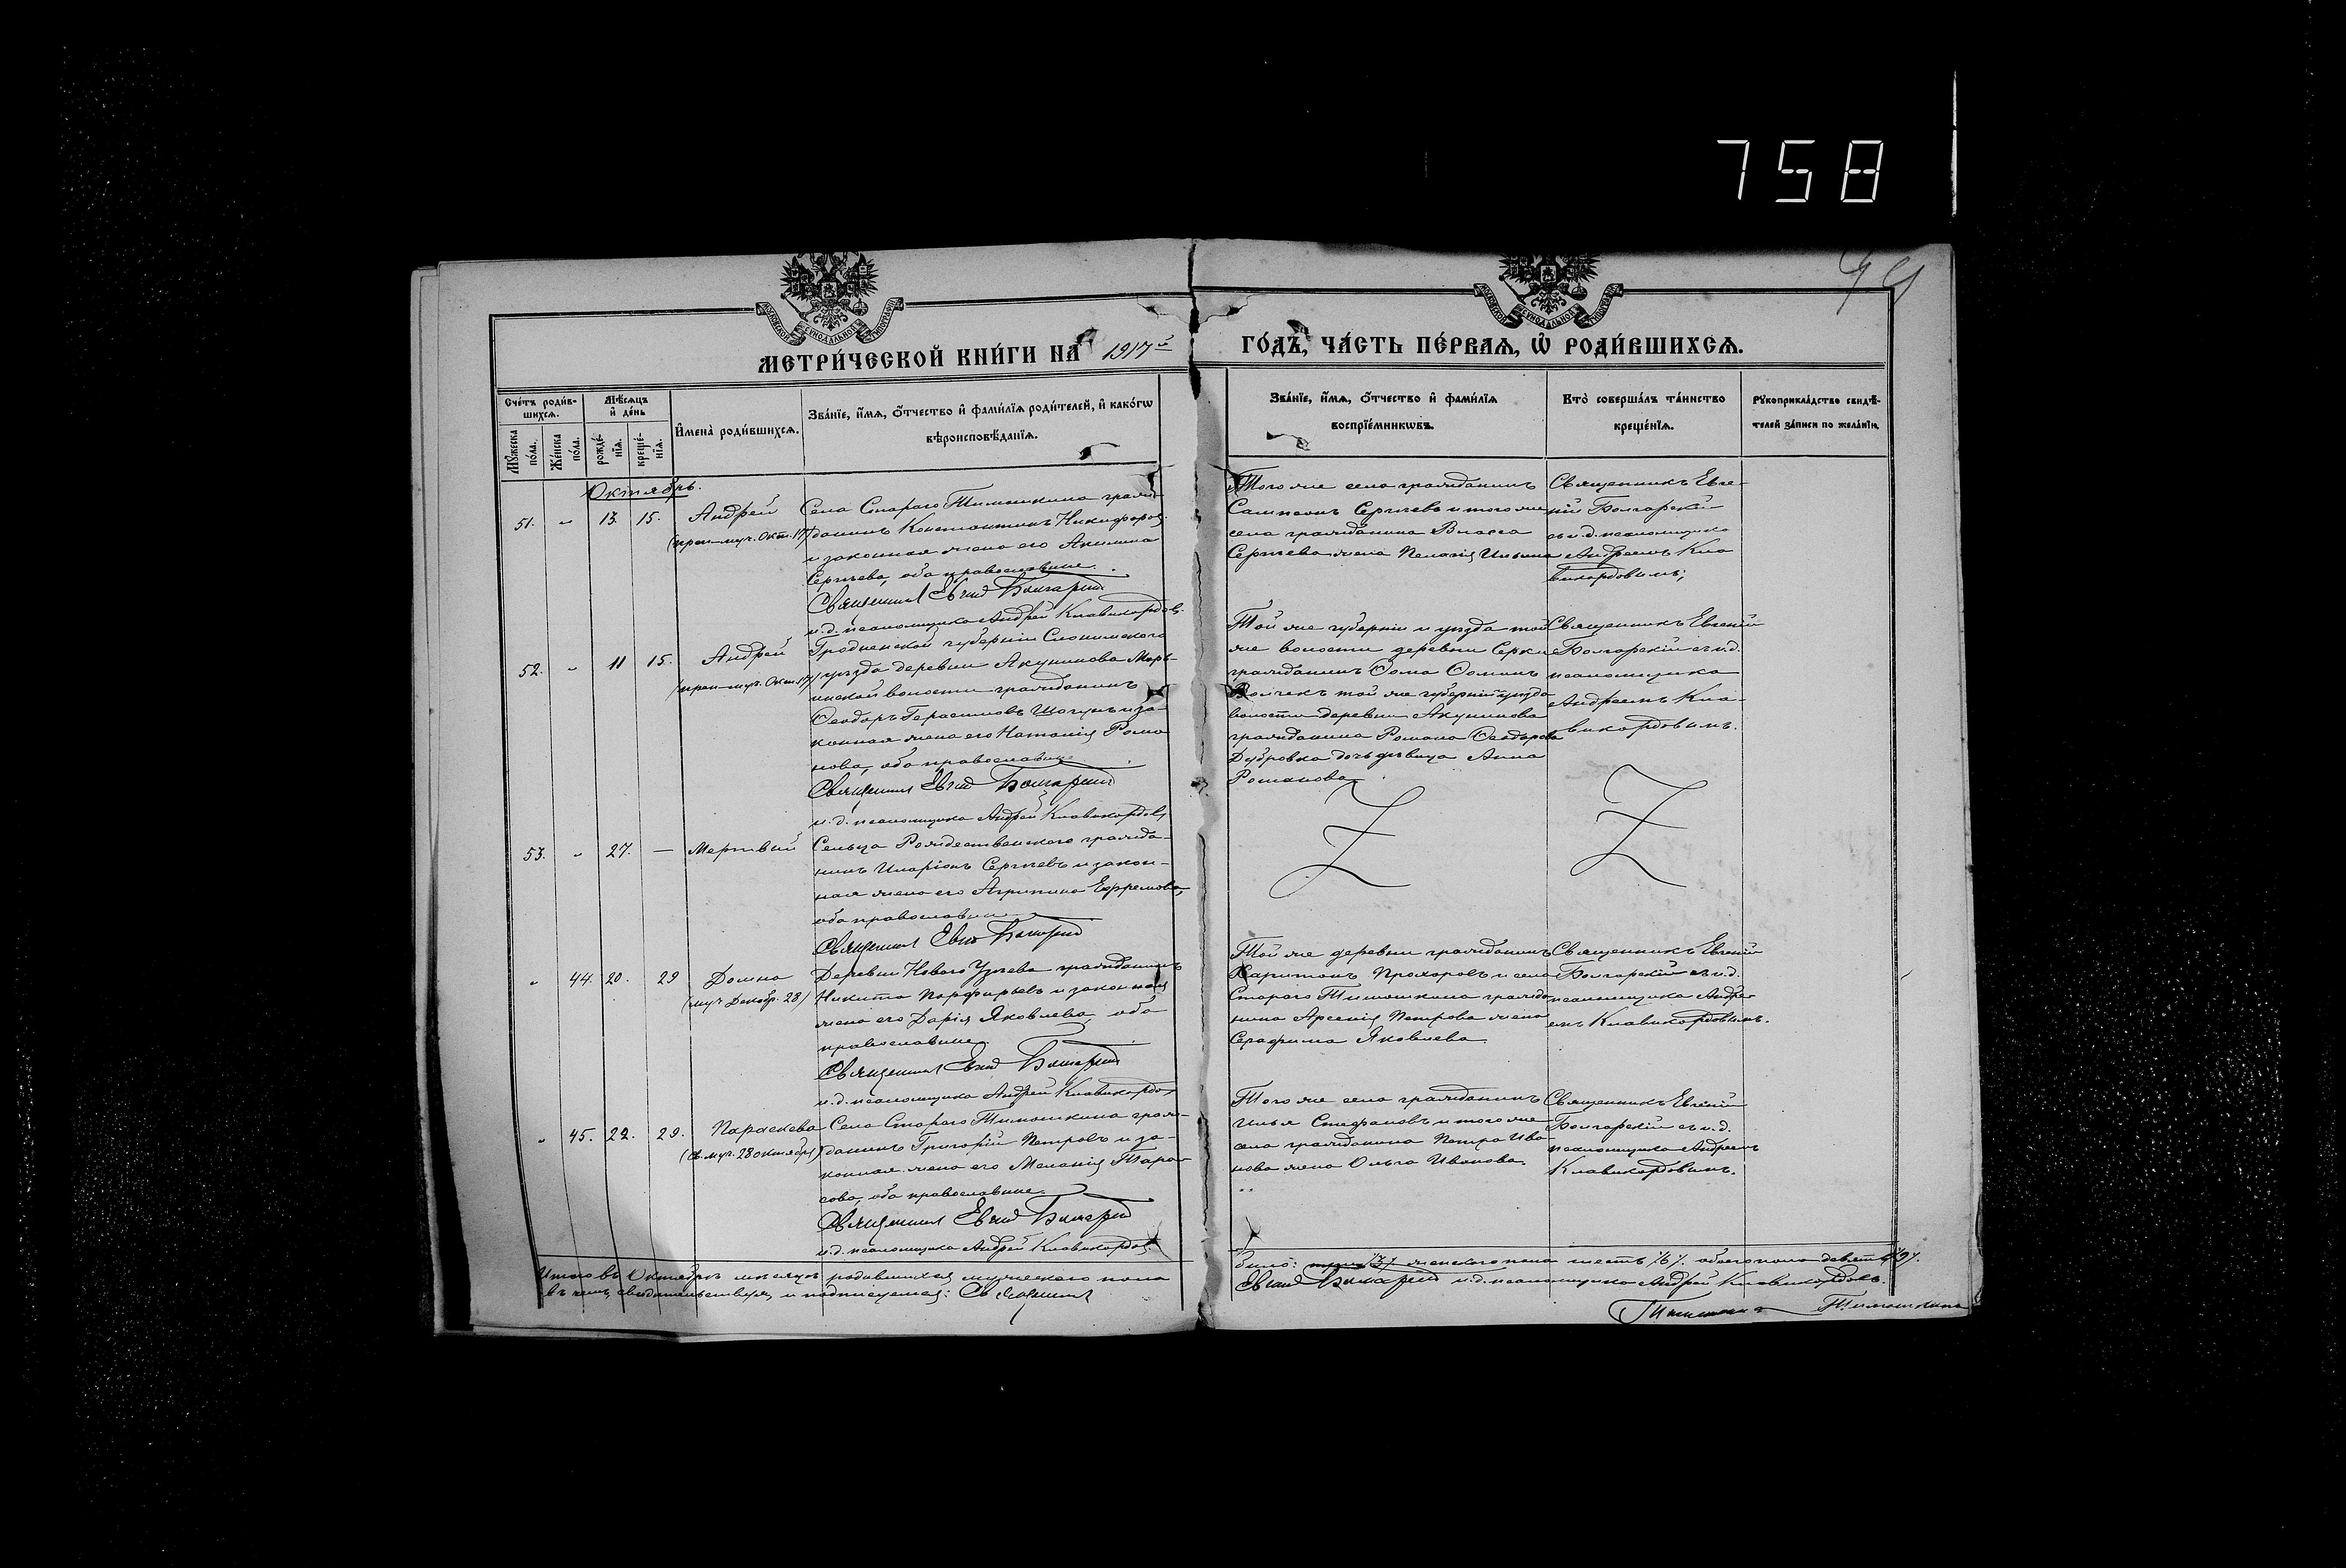 758
МОСКОВСКОЙ СѴНОДАЛЬНОЙ ТИПОГРАФІИ
МОСКОВСКОЙ СѴНОДАЛЬНОЙ ТИПОГРАФІИ
МЕТРИ́ЧЕСКОЙ КНИ́ГИ НА 1917й
ГО́ДЪ, ЧА́СТЬ ПЕ́РВАЯ, Ѿ РОДИ́ВШИХСЯ.
Сче́тъ роди́в-
шихся.
Мѣ́сяцъ
и҆ де́нь
Мꙋ́жеска
по́ла.
Же́нска
по́ла.
рожде́-
нїя.
креще́-
нїя.
И҆мена̀ роди́вшихся.
Зва́нїе, и҆́мя, ѻ҆́тчество и҆ фами́лїя роди́телей, и҆ како́гѡ
вѣроисповѣ́данїя.
Зва́нїе, и҆́мя, ѻ҆́тчество и҆ фами́лїя
воспрїе́мникѡвъ.
Кто̀ соверша́лъ та́инство
креще́нїя.
Рꙋкоприкла́дство свидѣ́-
телей за́писи по жела́нїю.
Октябрь.
51. " 13. 15. Андрей
(преп-муч. Окт. 17)
Села Стараго Тимошкина граж-
данинъ Константинъ Никифоровъ
и законная жена его Акилина
Сергѣева, оба православные.
Священникъ Евгеній Болгарскій
и.д. псаломщика Андрей Клавикордовъ
Того же села гражданинъ
Сампсонъ Сергѣевъ и того же
села гражданина Власа
Сергѣева жена Пелагія Ильина
Священникъ Евге-
ній Болгарскій
съ и.д. псаломщика
Андреемъ Кла
викордовымъ;
52. " 11 15. Андрей
(преп-муч. Окт. 17)
Гродненской губерніи Слонимскаго
уѣзда деревни Акунинова
волости гражданинъ
Ѳеодоръ Герасимовъ и за-
конная жена его Наталія Рома
нова, оба православные
Священникъ Евгеній Болгарскій
и.д. псаломщика Андрей Клавикордовъ
Той же губерніи и уѣзда той
же волости деревни Серки
гражданинъ Ѳома Ѳоминъ
Волчекъ той же губерніи уѣзда
волости деревни Акунинова
гражданина Романа Ѳеодорова
Дубровка дочь дѣвица Анна
Романова
Священникъ Евгеній
Болгарскій съ и.д.
псаломщика
Андреемъ Кла-
викордовымъ.
53. " 27. — Мертвый
Сельца Рождественскаго гражда-
нинъ Иларіонъ Сергѣевъ и закон-
ная жена его Агрипина Ефремова,
оба православные
Священникъ Евгеній Болгарскій
" 44. 20. 29 Домна
(муч Декабр. 28)
Деревни Новаго Узѣева гражданинъ
Никита Порфирьевъ и законная
жена его Дарія Яковлева, оба
православные.
Священникъ Евгеній Болгарскій
и.д. псаломщика Андрей Клавикордовъ
Той же деревни гражданинъ
Харитонъ Прохоровъ и села
Стараго Тимошкина гражда
нина Арсенія Петрова жена
Серафима Яковлева
Священникъ Евгеній
Болгарскій съ и.д.
псаломщика Андре-
емъ Клавикордовымъ.
" 45. 22. 29. Параскева
(св. муч. 28 октября)
Села Стараго Тимошкина граж-
данинъ Григорій Петровъ и за-
конная жена его Меланія Тара
сова, оба православные.
Священникъ Евгеній Болгарскій
и.д. псаломщика Андрей Клавикордовъ.
Того же села гражданинъ
Илья Стефановъ и того же
села гражданина Петра Ива
нова жена Ольга Иванова
Священникъ Евгеній
Болгарскій съ и.д.
псаломщика Андреемъ
Клавикордовымъ.
Итого въ Октябрѣ мѣсяцѣ родившихся мужескаго пола
было: три /3/ женскаго пола шесть /6/. обоего пола девять /9/.
въ чемъ, свидѣтельствуя, и подписуемся: Священникъ
Евгеній Болгарскій и.д. псаломщика Андрей Клавикордовъ.
Тимошкина